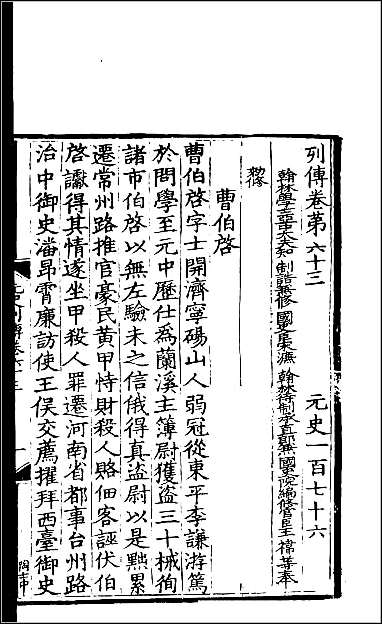 列傳卷第六十三　元史一百七十六
翰林學士亞中大夫知制誥兼修國史臣宋濂　翰林待制承直郎兼國史院編修官臣王禕等奉
勑修
曹伯啓
曹伯啓字士開濟寧碭山人弱冠從東平李謙游篤
於問學至元中歷仕爲蘭溪主簿尉獲盜三十械徇
諸市伯啓以無左驗未之信俄得真盜尉以是黜累
遷常州路推官豪民黃甲恃財殺人賂佃客誣伏伯
啓讞得其情遂坐甲殺人罪遷河南省都事台州路
治中御史潘昂霄廉訪使王俁交薦擢拜西臺御史